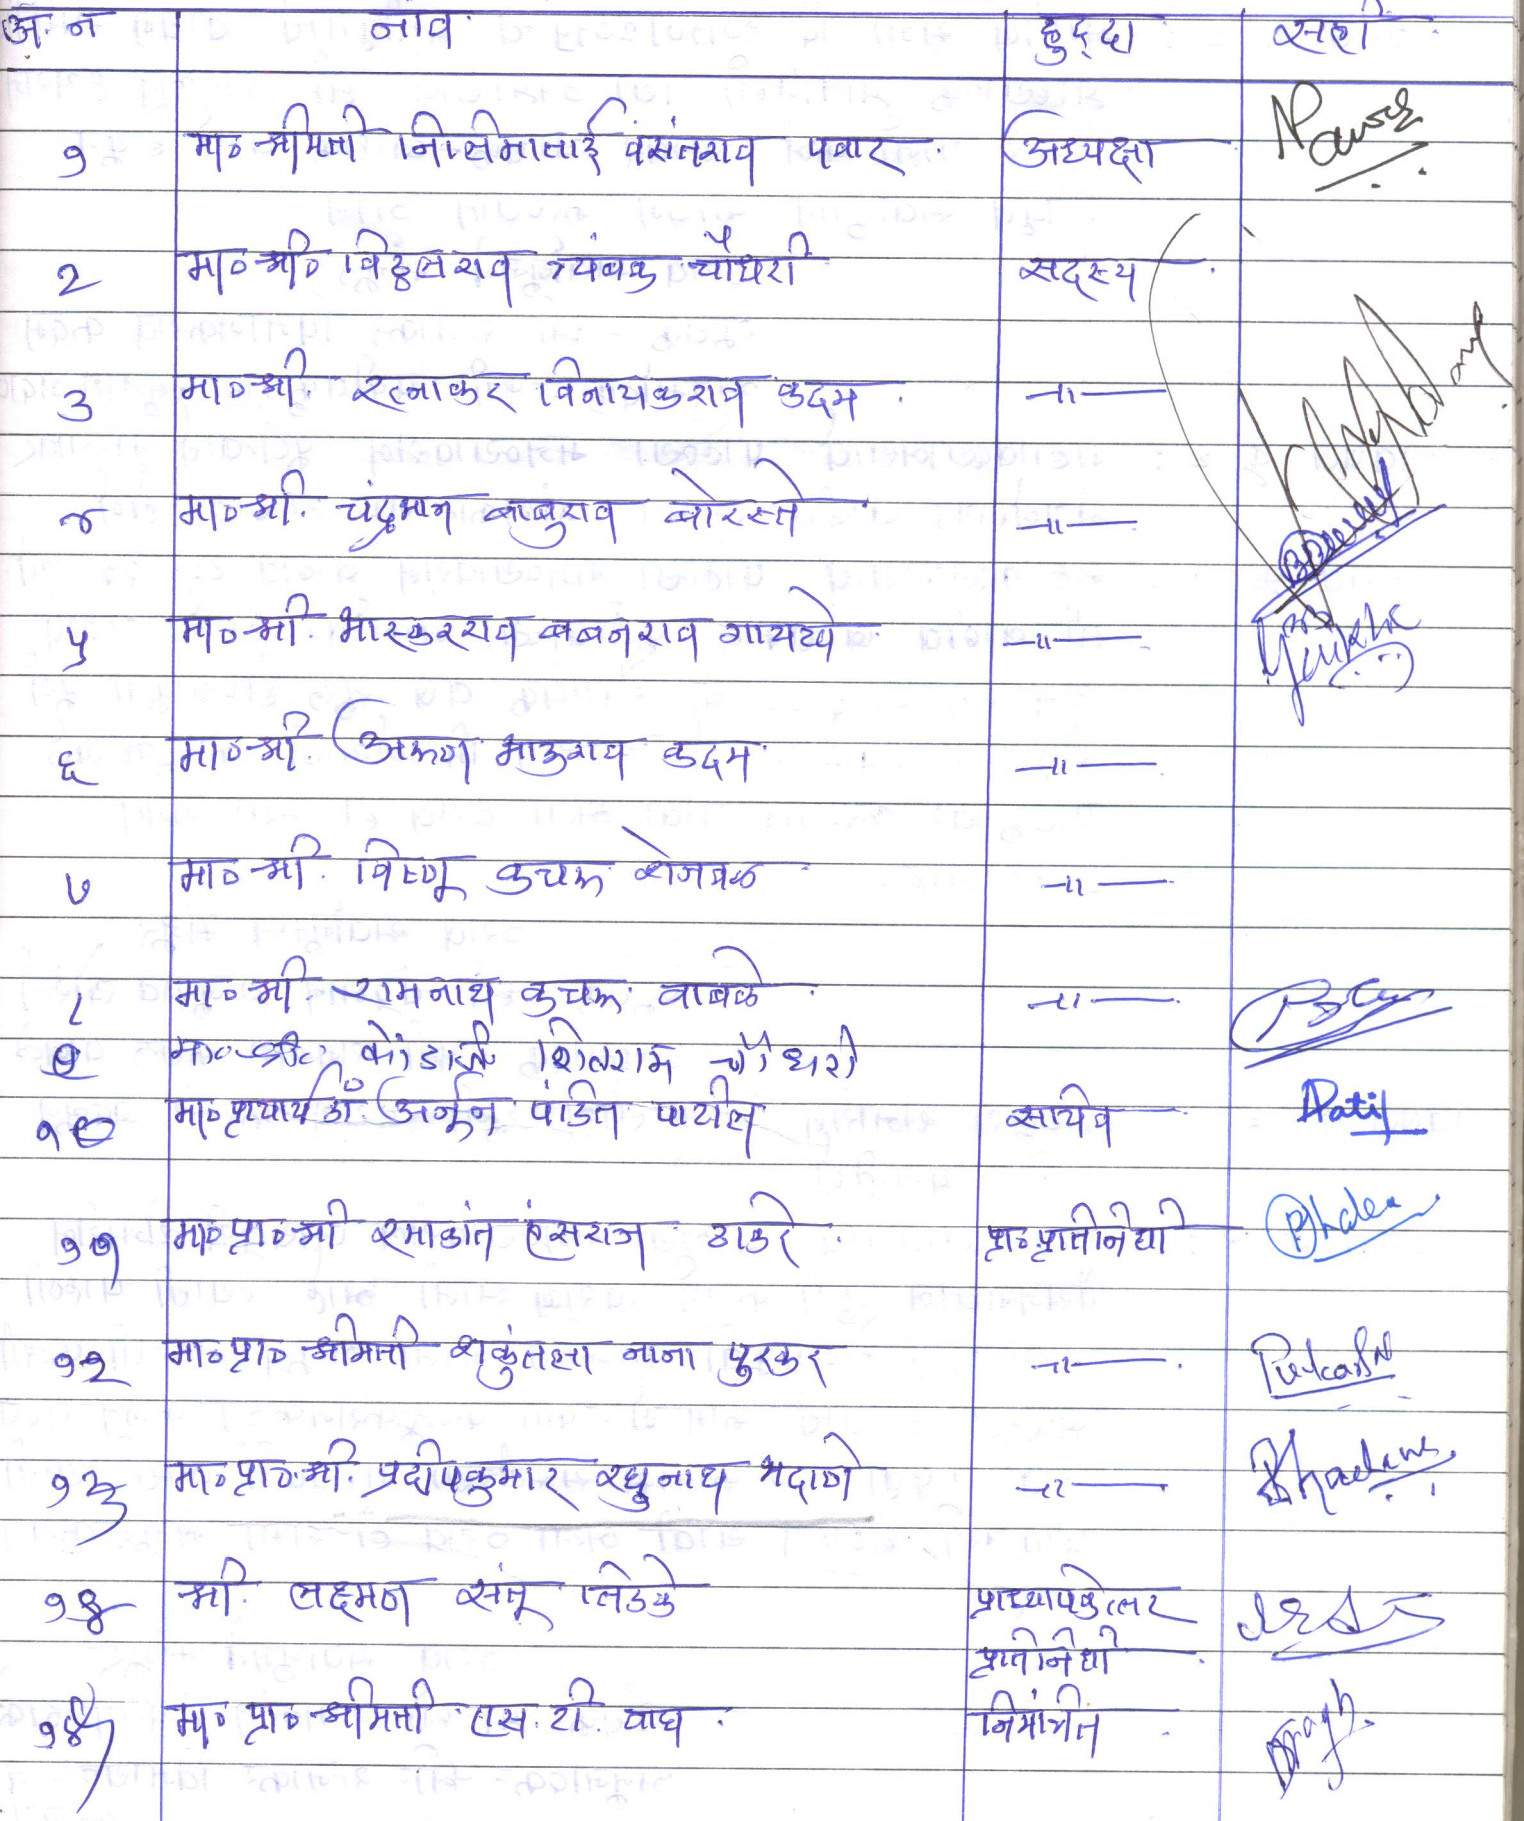 अ. नं नाव हुद्दा सही
१ मा० श्रीमती निलीमाताई वसंतराव पवार. अध्यक्षा
२ मा० श्री० विठ्ठलराव त्र्यंबक चौधरी सदस्य
३ मा० श्री. रत्नाकर विनायकराव कदम. -॥-
४ मा० श्री. चंद्रभान बाबुराव बोरस्ते -॥-
५ मा० श्री. भास्करराव बबनराव गायखे -॥-
६ मा० श्री अरुण भाऊराव कदम -॥-
७ मा० श्री. विष्णू कचरू शेजवळ -॥-
८ मा० श्री. रामनाथ कचरू बाबळे -॥-
९ मा० श्री० कोंडाजी शितराम चौधरी
१० मा० प्राचार्य डॉ. अर्जुन पंडित पाटील सचिव Patil
११ मा० प्रा० श्री रमाकांत हंसराज ठाकरे प्रा० प्रतिनिधी
१२ मा० प्रा० श्रीमती शकुंतला नाना पुरकर -॥-
१३ मा० प्रा० श्री. प्रदीपकुमार रघुनाथ भदाणे -॥-
१४ श्री. लक्ष्मण संतू लिडके प्राध्यापकेत्तर
प्रतिनिधी
१५ मा० प्रा० श्रीमती एस. टी. वाघ. निमंत्रीत